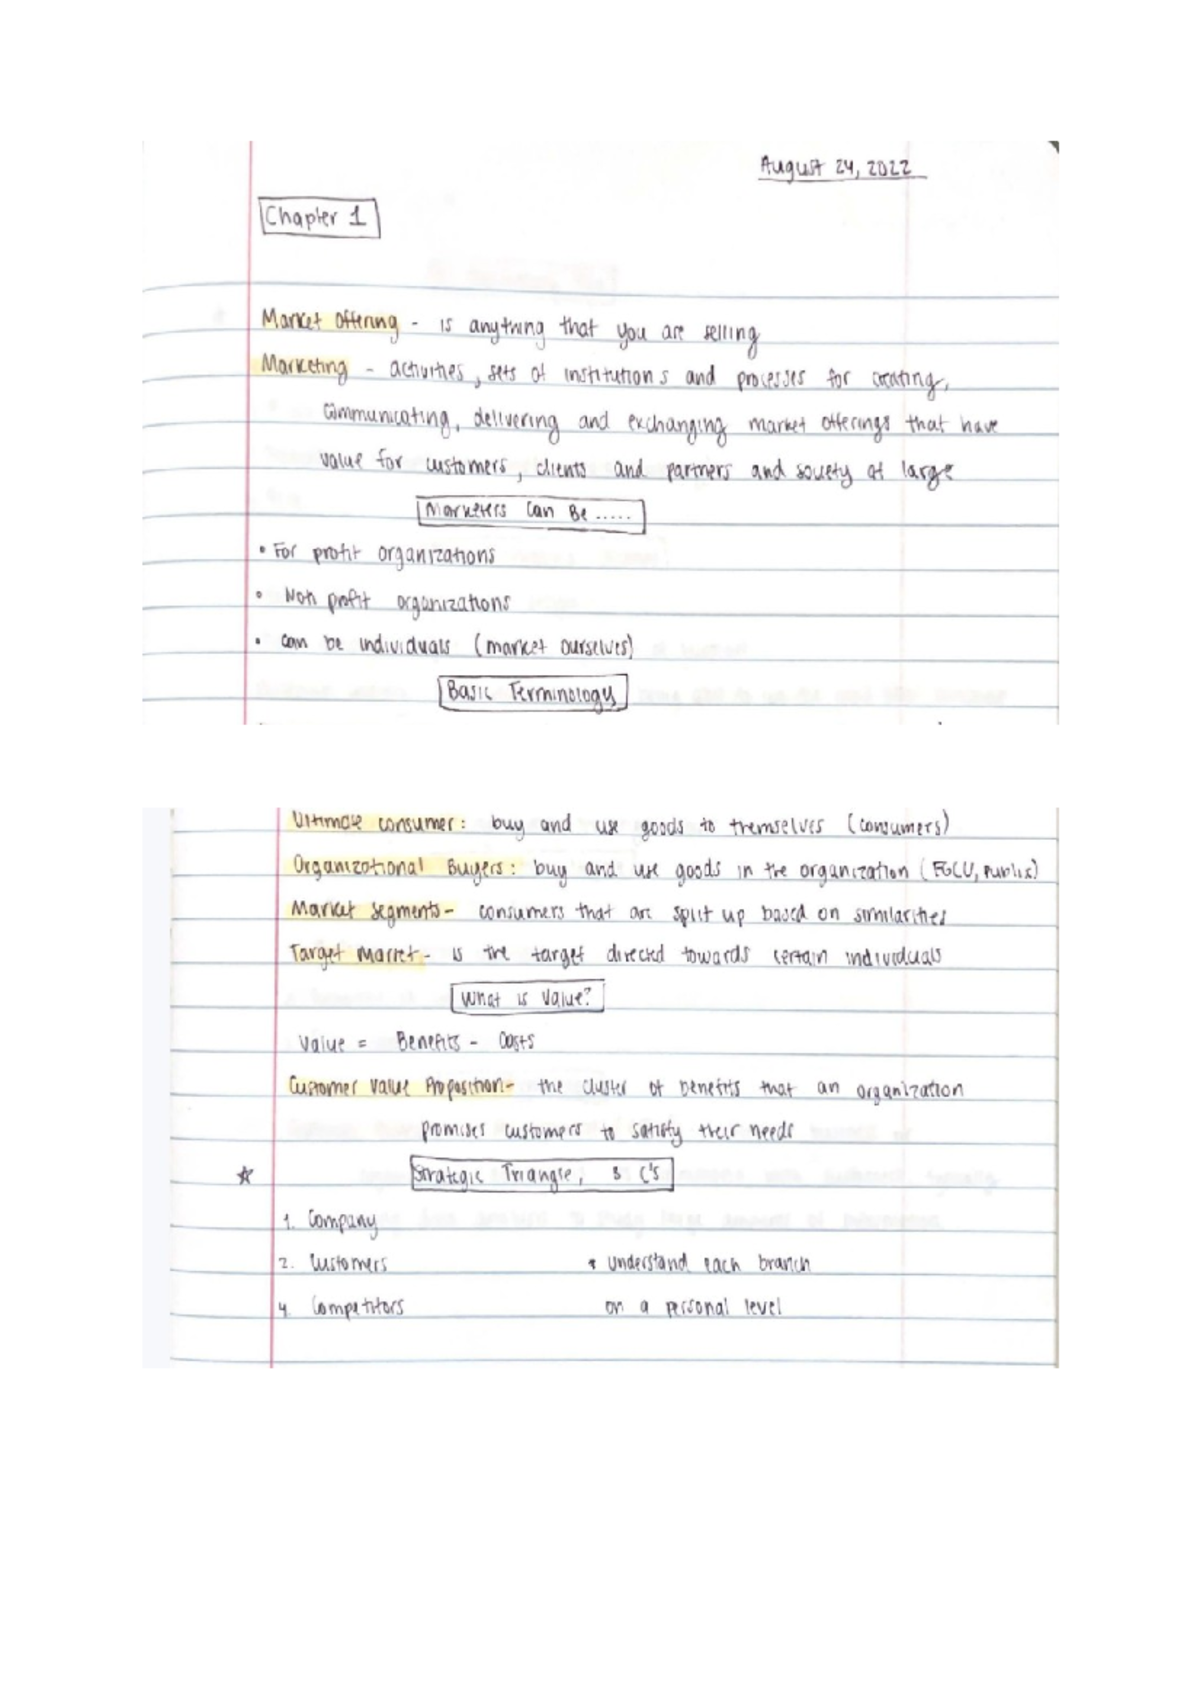 August 24, 2022
Chapter 1
Market offering - is anything that you are selling
Marketing - activities, sets of institutions and processes for creating,
communicating, delivering and exchanging market offerings that have
value for customers, clients and partners and society at large
Marketers Can Be .....
• For profit organizations
• Non profit organizations
• can be individuals (market ourselves)
Basic Terminology
Ultimate consumer: buy and use goods to themselves (consumers)
Organizational Buyers: buy and use goods in the organization (FGCU, Publix)
Market segments- consumers that are split up based on similarities
Target Market- is the target directed towards certain individuals
What is Value?
Value = Benefits - Costs
Customer Value Proposition- the cluster of benefits that an organization
promises customers to satisfy their needs
☆ Strategic Triangle, 3 C's
1. Company
2. Customers * understand each branch
4. Competitors on a personal level